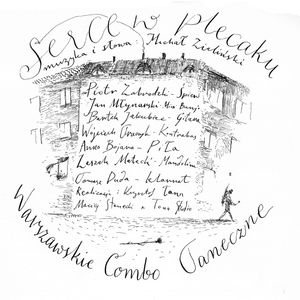 Serce w plecaku
muzyka i słowa Michał Zieliński
Piotr Zabrodzki - Śpiew
Jan Młynarski - Banjo
Bartek Jakubiec - Gitara
Wojciech - Kontrabas
Anna Bojara - Piła
Leszek Matecki - Mandolina
Tomasz Duda - Klarnet
Realizacja: Krzysztof
Maciej Stanecki Studio
Warszawskie Combo Taneczne